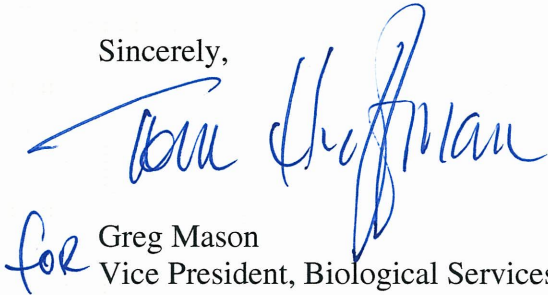 Sincerely,
Tom Huffman
for Greg Mason
Vice President, Biological Services